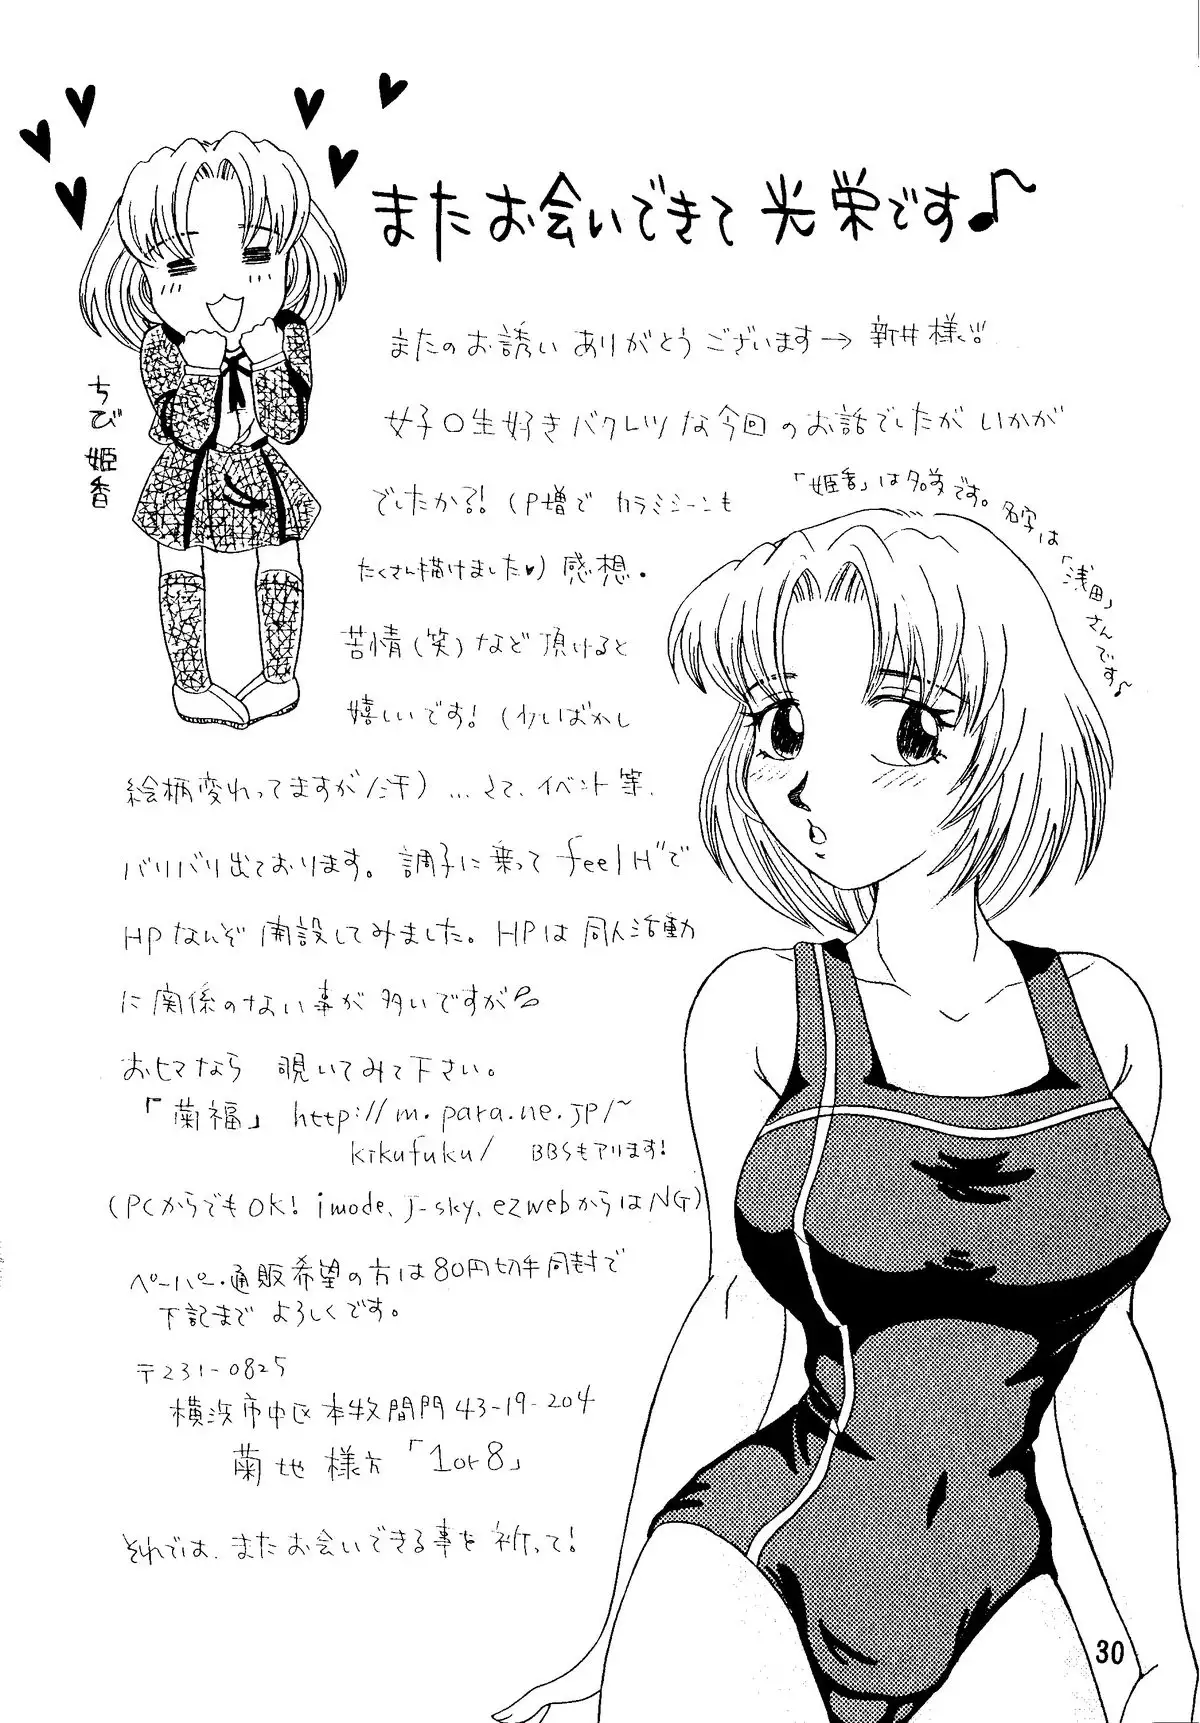 またお会いできて光栄です♪〜
またのお誘いありがとうございます→新井様!!
女子○生好きバクレツな今回のお話でしたがいかが
でしたか?!(P増でカラミシーンも
たくさん描けました♥)感想・
苦情(笑)など頂けると
嬉しいです!(
絵柄変わってますが/汗)…さて、イベント等、
バリバリ出ております。調子に乗ってfeelH"で
HPなんぞ開設してみました。HPは同人活動
に関係のない事が多いですが
おヒマなら 覗いてみて下さい。
「菊福」 http://m.para.ne.jp/~
kikufuku/ BBSもアリます!
(PCからでもOK! imode、J-sky、ezwebからはNG)
ペーパー・通販希望の方は80円切手同封で
下記まで よろしくです。
〒231-0825
横浜市中区本牧間門43-19-204
菊地様方「1or8」
それでは、またお会いできる事を祈って!
ちび姫香
「姫香」は名前です。名字は
「浅田」さんです♪
30